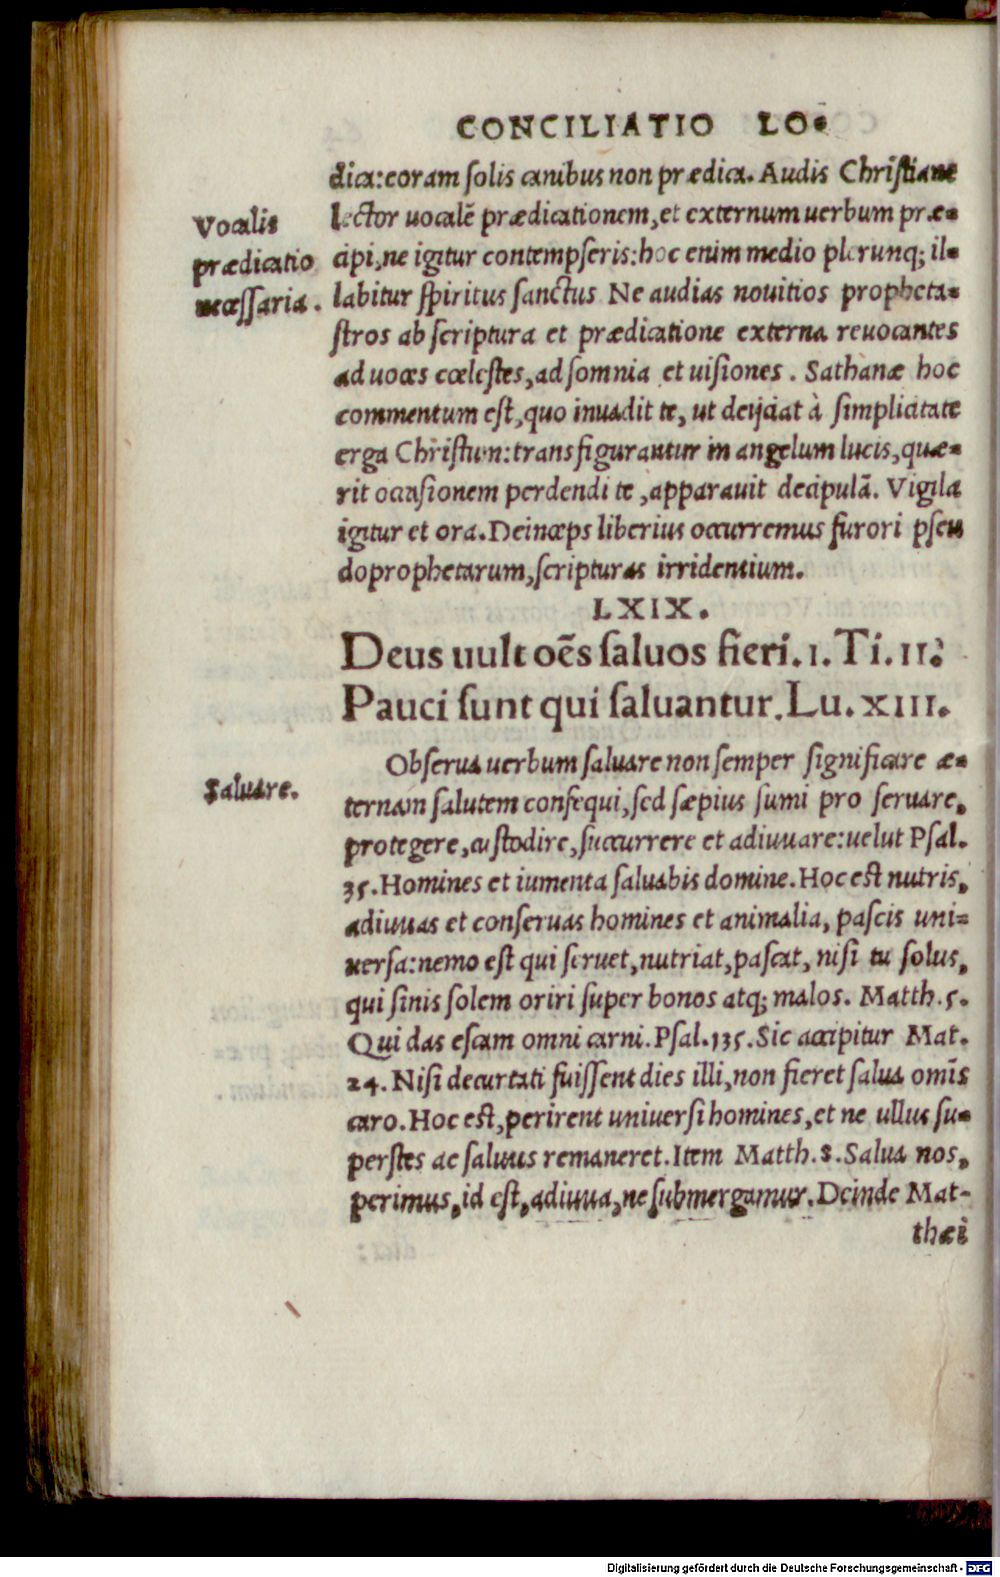 CONCILIATIO LO-
dica: coram solis canibus non prædica. Audis Christiane
Vocalis
prædicatio
necessaria.
lector uocalē prædicationem, et externum uerbum præ-
cipi, ne igitur contempseris: hoc enim medio plerunq; il-
labitur spiritus sanctus Ne audias nouitios propheta-
stros ab scriptura et prædicatione externa reuocantes
ad uoces cœlestes, ad somnia et uisiones. Sathanæ hoc
commentum est, quo inuadit te, ut deijciat à simplicitate
erga Christum: transfigurantur in angelum lucis, quæ-
rit occasionem perdendi te, apparauit decipulā. Vigila
igitur et ora. Deinceps liberius occurremus furori pseu
doprophetarum, scripturas irridentium.
LXIX.
Deus uult oēs saluos fieri. 1. Ti. II.
Pauci sunt qui saluantur. Lu. XIII.
Saluare.
Obserua uerbum saluare non semper significare æ-
ternam salutem consequi, sed sæpius sumi pro seruare,
protegere, custodire, succurrere et adiuuare: uelut Psal.
35. Homines et iumenta saluabis domine. Hoc est nutris,
adiuuas et conseruas homines et animalia, pascis uni-
uersa: nemo est qui seruet, nutriat, pascat, nisi tu solus,
qui sinis solem oriri super bonos atq; malos. Matth. 5.
Qui das escam omni carni. Psal. 135. Sic accipitur Mat.
24. Nisi decurtati fuissent dies illi, non fieret salua omīs
caro. Hoc est, perirent uniuersi homines, et ne ullus su-
perstes ac saluus remaneret. Item Matth. 8. Salua nos,
perimus, id est, adiuua, ne submergamur. Deinde Mat-
thæi
Digitalisierung gefördert durch die Deutsche Forschungsgemeinschaft - DFG